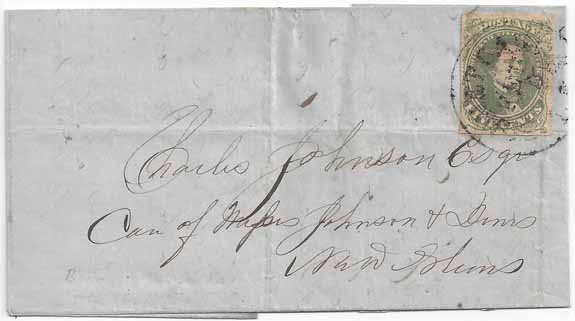 FIVE CENTS
Charles Johnson Esqr
Care of Messrs Johnson & Denis
New Orleans